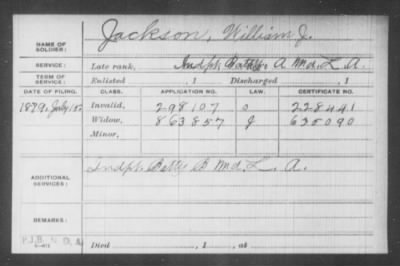 NAME OF SOLDIER: Jackson, William J.
SERVICE: Late rank, Indpt. Batty A Md. L. A.
TERM OF SERVICE: Enlisted , 1 Discharged , 1
DATE OF FILING. CLASS. APPLICATION NO. LAW. CERTIFICATE NO.
1879, July Invalid, 298107 228441
Widow, 863857 J 635090
Minor,
ADDITIONAL SERVICES: Indpt. Batty B Md. L. A.
REMARKS:
Died , 1 , at